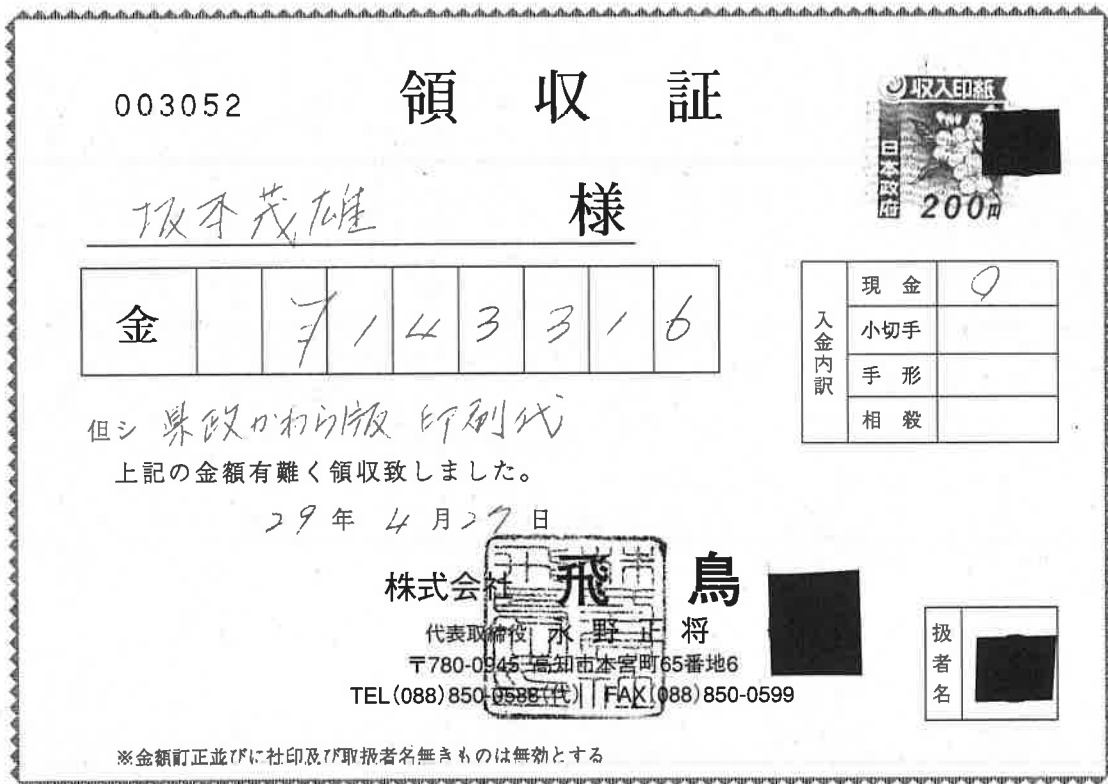 003052
領収証
収入印紙
日本政府
200円
坂本茂雄 様
金 ¥143316
入金内訳
現金 〇
小切手
手形
相殺
但シ 県政かわら版 印刷代
上記の金額有難く領収致しました。
29年 4月27日
株式会社 飛鳥
代表取締役 永野正将
〒780-0945 高知市本宮町65番地6
TEL(088)850-0588(代) FAX(088)850-0599
扱者名
※金額訂正並びに社印及び取扱者名無きものは無効とする